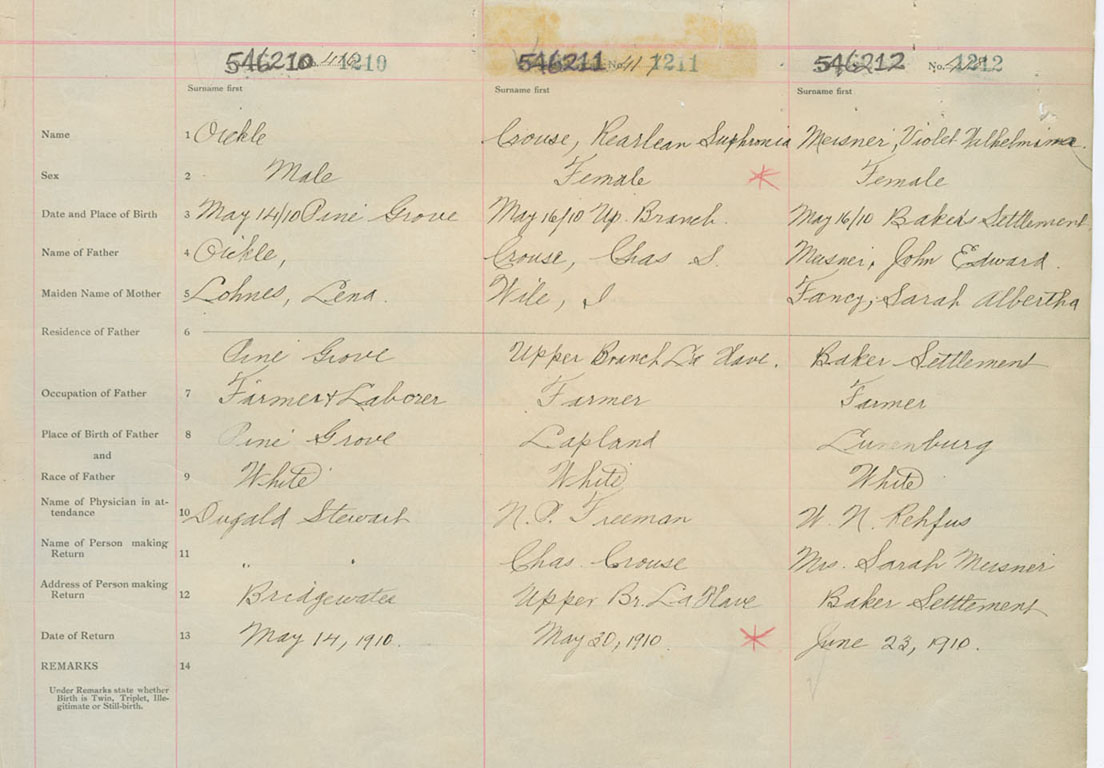 546210 No. 1210 546211 No. 417 1211 546212 No. 1212
Surname first Surname first Surname first
Name 1 Oickle Crouse, Rearlean Suphronia Meisner, Violet Wilhelmima.
Sex 2 Male Female Female
Date and Place of Birth 3 May 14/10 Pine Grove May 16/10 Up. Branch. May 16/10 Baker's Settlement
Name of Father 4 Oickle, Crouse, Chas S. Meisner, John Edward.
Maiden Name of Mother 5 Lohnes, Lena. Wile, I Fancy, Sarah Albertha
Residence of Father 6
Pine Grove Upper Branch La Have. Baker Settlement
Occupation of Father 7 Farmer & Laborer Farmer Farmer
Place of Birth of Father 8 Pine Grove Lapland Lunenburg
and
Race of Father 9 White White White
Name of Physician in at-
tendance 10 Dugald Stewart N. P. Freeman W. N. Rehfus
Name of Person making
Return 11 " " Chas. Crouse Mrs. Sarah Meisner
Address of Person making
Return 12 Bridgewater Upper Br. La Have Baker Settlement
Date of Return 13 May 14, 1910. May 20, 1910. June 23, 1910.
REMARKS 14
Under Remarks state whether
Birth is Twin, Triplet, Ille-
gitimate or Still-birth.